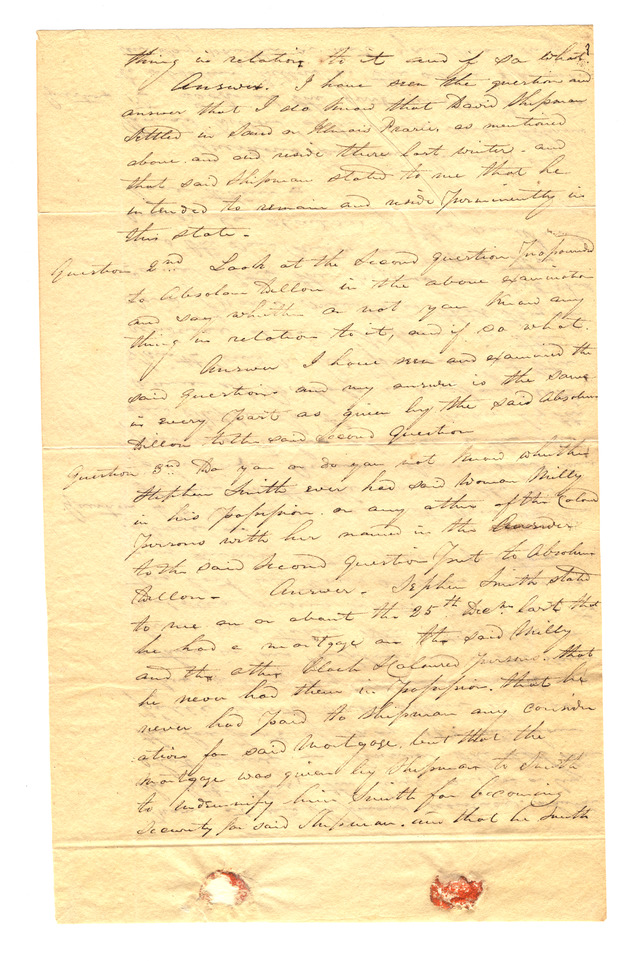 thing in relation to it and if so what?
Answer. I have seen the question and
answer that I do know that David Shipman
settled in Sand or Illinois Prarie, as mentioned
above and did reside there last winter. and
that said Shipman stated to me that he
intended to remain and reside perminently in
this state.
Question 2nd Look at the second question propounded
to Absolom Dillon in the above examination
and say whither or not you know any
thing in relation to it, and if so what.
Answer I have seen and examined the
said question and my answer is the same
in every part as given by the said Absolom
Dillon to the said second Question
Question 3rd Do you or do you not know whither
Stephen Smith ever had said woman Milly
in his possession or any other of the Colored
persons with her named in the Answer
to the said Second Question put to Absolom
Dillon. Answer. Stephen Smith stated
to me on or about the 25th Decr. last that
he had a mortgage on the said Milly
and the other black & coloured persons. that
he never had them in possession. that he
never had paid to Shipman any consider
ation for said mortgage. but that the
mortgage was given by Shipman to Smith
to indemnify him Smith for becoming
security for said Shipman. and that he Smith